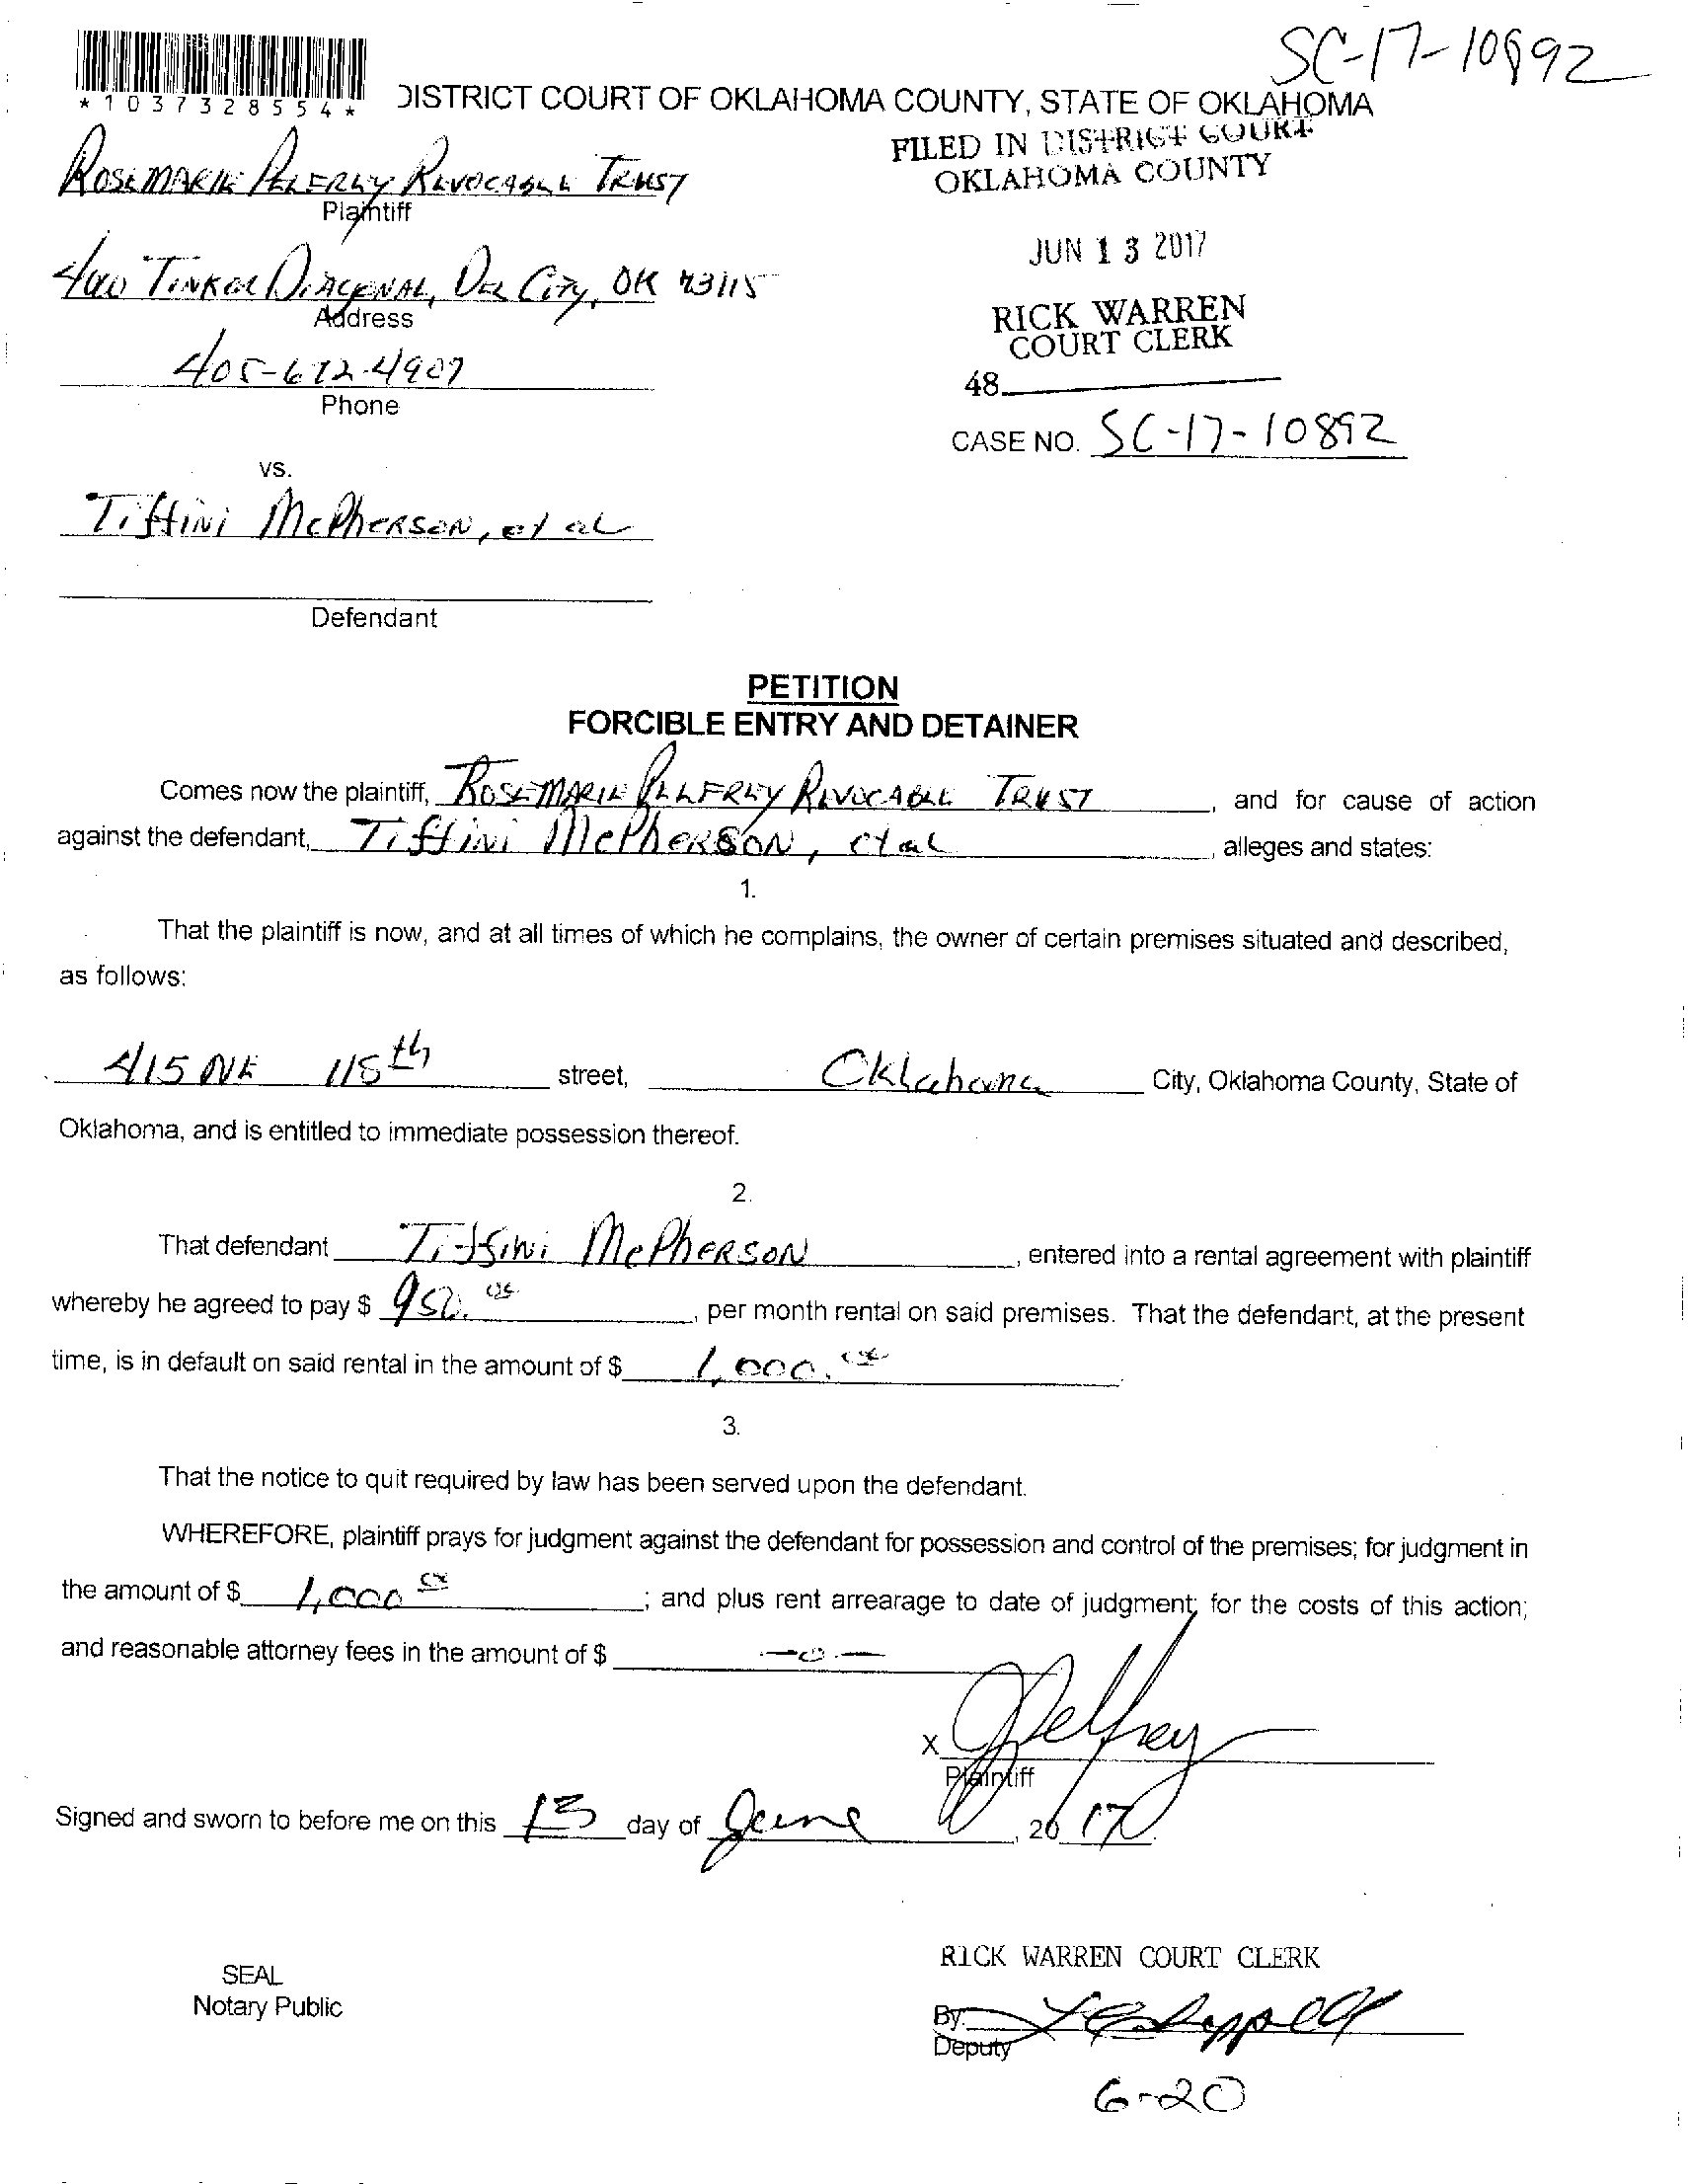 SC-17-10892
*1037328554*
DISTRICT COURT OF OKLAHOMA COUNTY, STATE OF OKLAHOMA
FILED IN DISTRICT COURT
OKLAHOMA COUNTY
ROSEMARIE PELFREY REVOCABLE TRUST
Plaintiff
JUN 13 2017
TINKER DIAGENAL, DEL CITY, OK 73115
Address
RICK WARREN
COURT CLERK
405-672-4907
Phone
48
CASE NO. SC-17-10892
vs.
Tiffini McPherson, et al
Defendant
PETITION
FORCIBLE ENTRY AND DETAINER
Comes now the plaintiff, ROSEMARIE PELFREY REVOCABLE TRUST, and for cause of action
against the defendant, Tiffini McPherson, et al, alleges and states:
1.
That the plaintiff is now, and at all times of which he complains, the owner of certain premises situated and described,
as follows:
415 NE 115th street, Oklahoma City, Oklahoma County, State of
Oklahoma, and is entitled to immediate possession thereof.
2.
That defendant Tiffini McPherson, entered into a rental agreement with plaintiff
whereby he agreed to pay $, per month rental on said premises. That the defendant, at the present
time, is in default on said rental in the amount of $ 1,000.
3.
That the notice to quit required by law has been served upon the defendant.
WHEREFORE, plaintiff prays for judgment against the defendant for possession and control of the premises; for judgment in
the amount of $ 1,000; and plus rent arrearage to date of judgment; for the costs of this action;
and reasonable attorney fees in the amount of $ -0-
x Pelfrey
Plaintiff
Signed and sworn to before me on this 13 day of June, 2017.
RICK WARREN COURT CLERK
SEAL
Notary Public
By:
Deputy
6-20